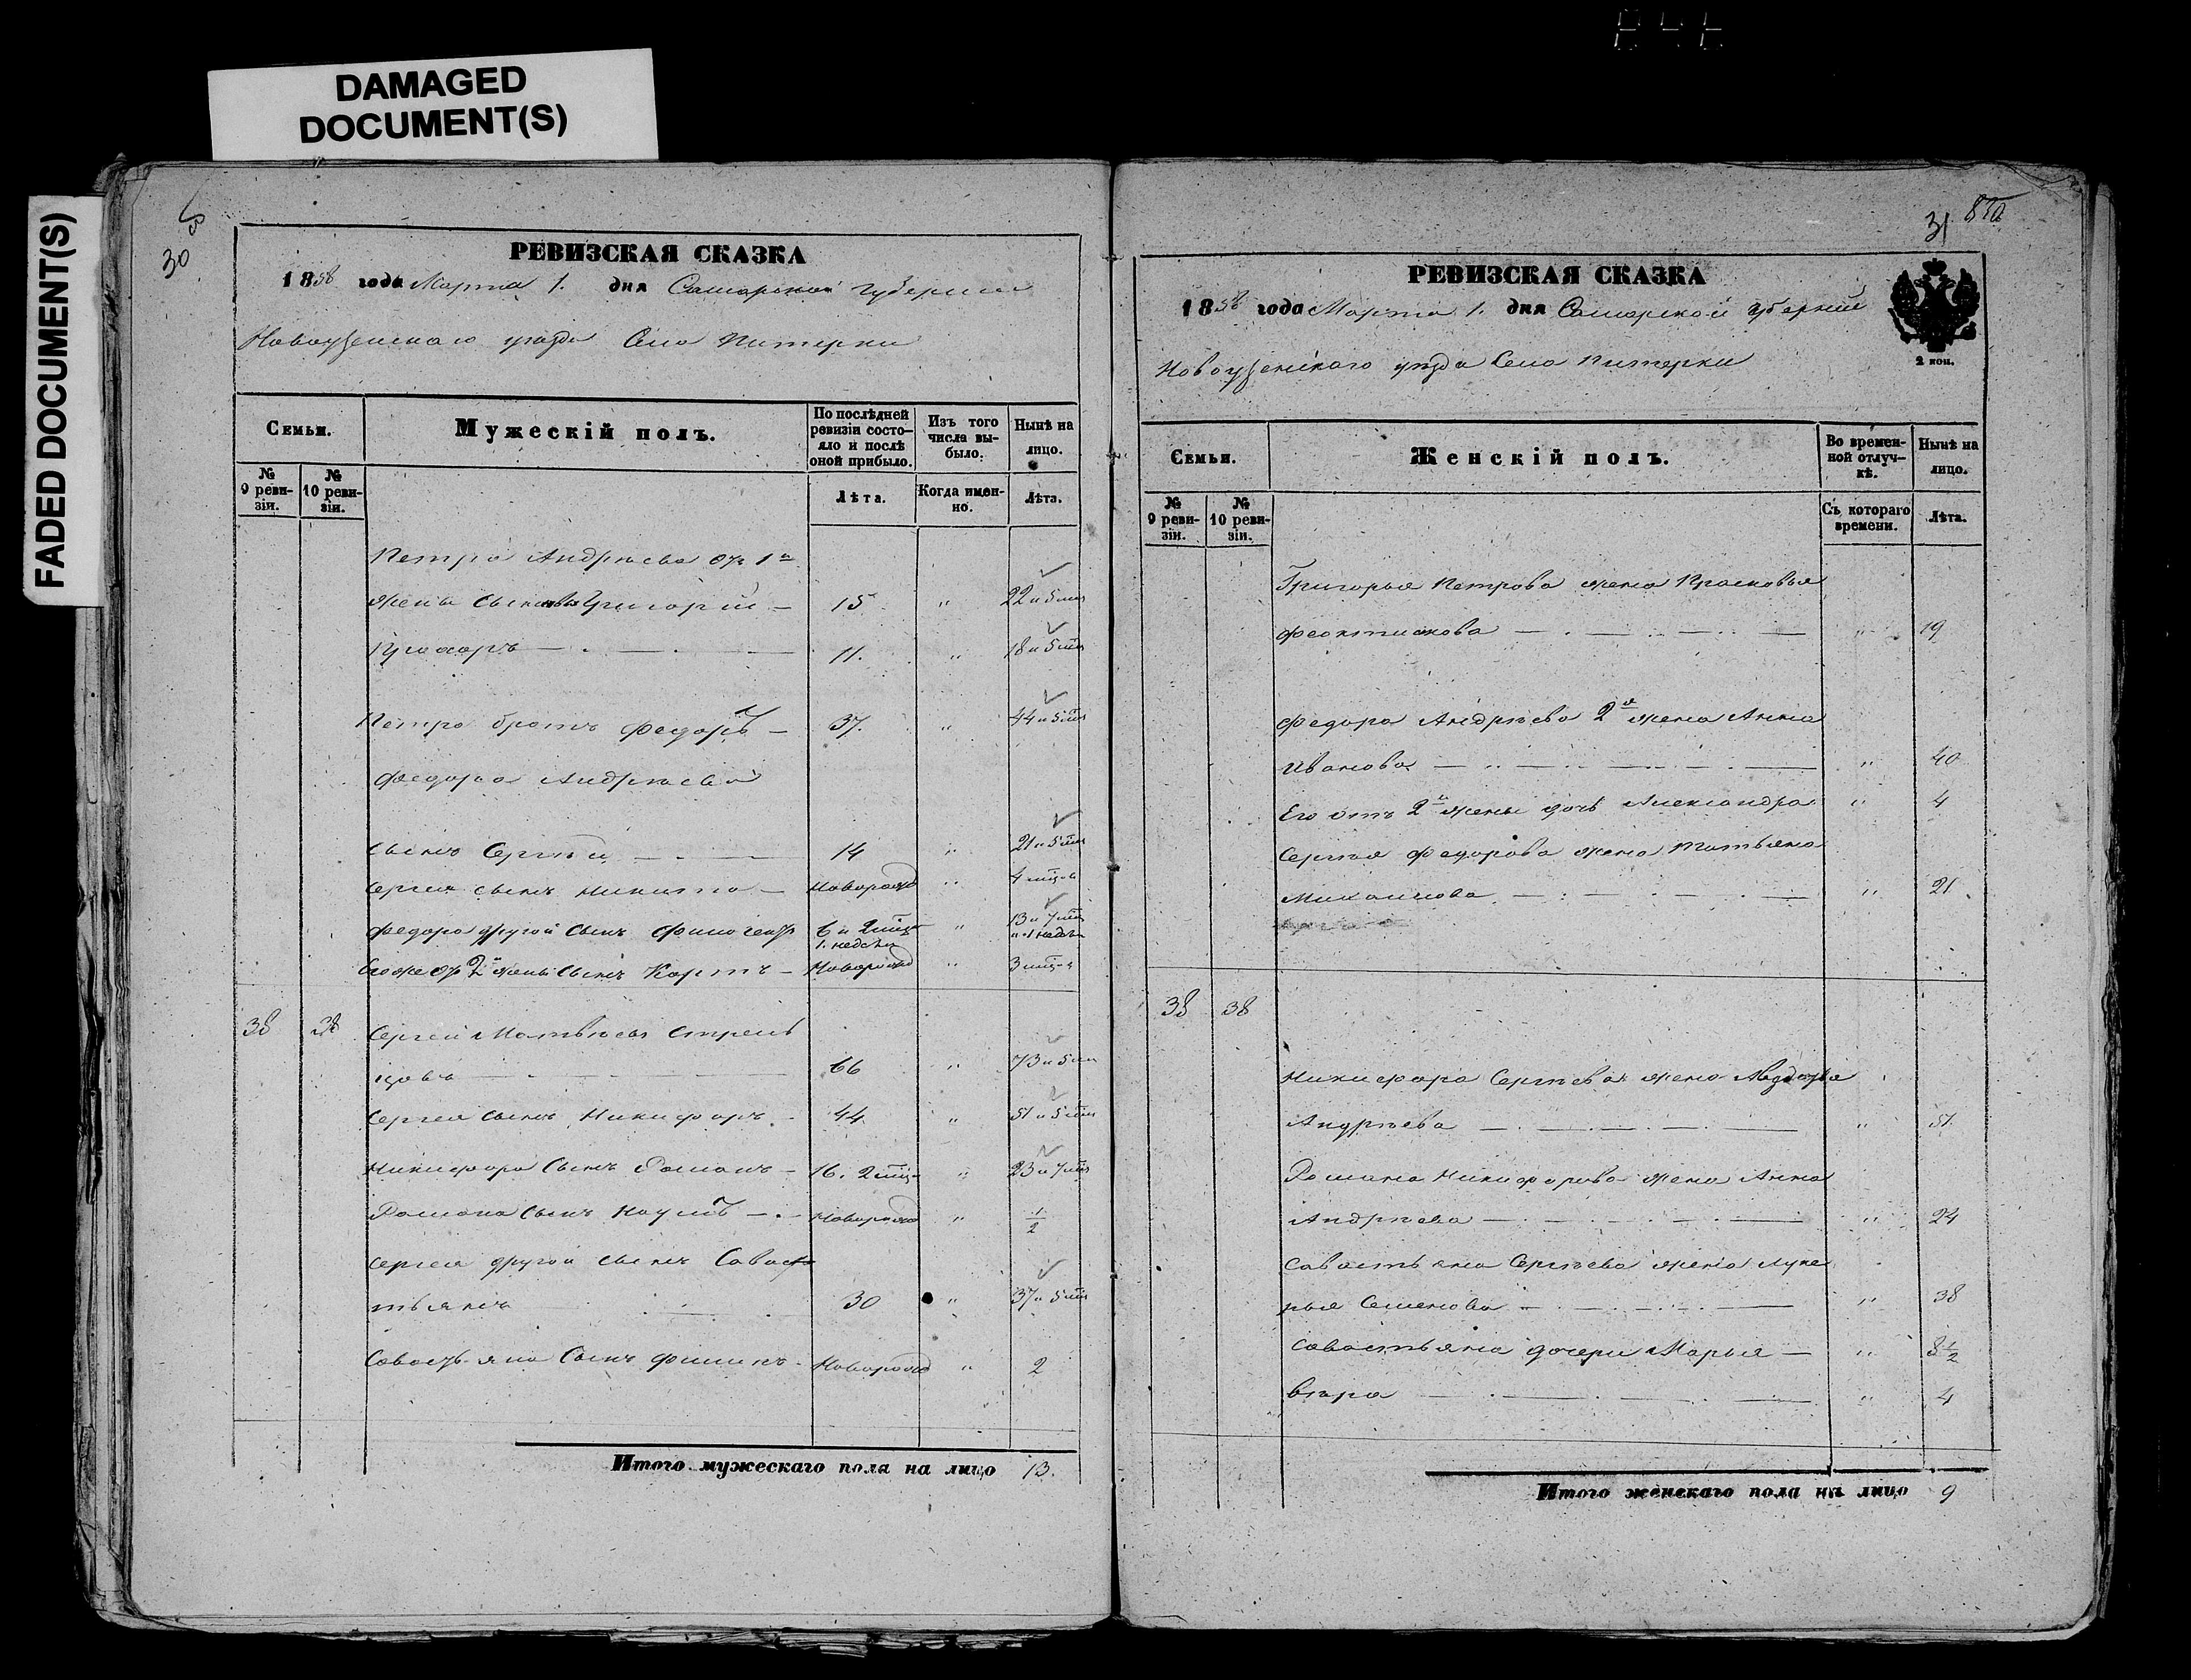 DAMAGED
DOCUMENT(S)
FADED DOCUMENT(S)
30
РЕВИЗСКАЯ СКАЗКА
1858 года Марта 1. дня Самарской Губернии
Новоузенскаго уезда Село Питерки
Семьи.
Мужескій полъ.
По послѣдней ревизіи состояло и послѣ оной прибыло.
Изъ того числа выбыло.
Нынѣ на лицо.
№ 9 ревизіи.
№ 10 ревизіи.
Лѣта.
Когда именно.
Лѣта.
Петра Андреева отъ 1й
жены сыновья Григорій — 15 " 22 и 5 мцъ
11. " 18 и 5 мцъ
Петра братъ Федоръ — 37. " 44 и 5 мцъ
Федора Андреева
сынъ Сергѣй — 14 " 21 и 5 мцъ
Сергея сынъ Никита — Новорожд " 4 мцов
Федора другой сынъ 6 и 2 мцъ 1. недели " 13 и 7 мцъ и 1 недел
Его же отъ 2й жены сынъ Карпъ — Новорожд " 3 мцъа
38 38 Сергей Матвѣевъ Стрель
цовъ — 66 " 73 и 5 мцъ
Сергея сынъ Никифоръ. 44 " 51 и 5 мцъ
Никифора Сынъ Романъ — 16. 2 мцъ " 23 и 7 мцъ
Романа сынъ Наумъ — Новорожд " 1/2
Сергея другой сынъ Савос
тьянъ 30 " 37 и 5 мцъ
Савостьяна Сынъ Филипъ — Новорожд " 2
Итого мужескаго пола на лицо 13.
31
РЕВИЗСКАЯ СКАЗКА
1858 года Марта 1. дня Самарской губерніи
2 коп.
Новоузенскаго уезда Село Питерки
Семьи.
Женскій полъ.
Во временной отлучкѣ.
Нынѣ на лицо.
№ 9 ревизіи.
№ 10 ревизіи.
Съ котораго времени.
Лѣта.
Григорья Петрова жена Прасковья
Феоктистова — " 19
Федора Андреева 2я жена Анна
Иванова — " 40
Его отъ 2й жены дочь Александра " 4
Сергея Федорова жена Татьяна
Михайлова — " 21.
38 38
Никифора Сергѣева жена Авдотья
Андреева — " 51.
Романа Никифорова жена Анна
Андреева — " 24
Савостьяна Сергѣева жена Луке
рья Семенова — " 38
Савостьяна дочери Марья — " 8 1/2
Вѣра — " 4
Итого женскаго пола на лицо 9